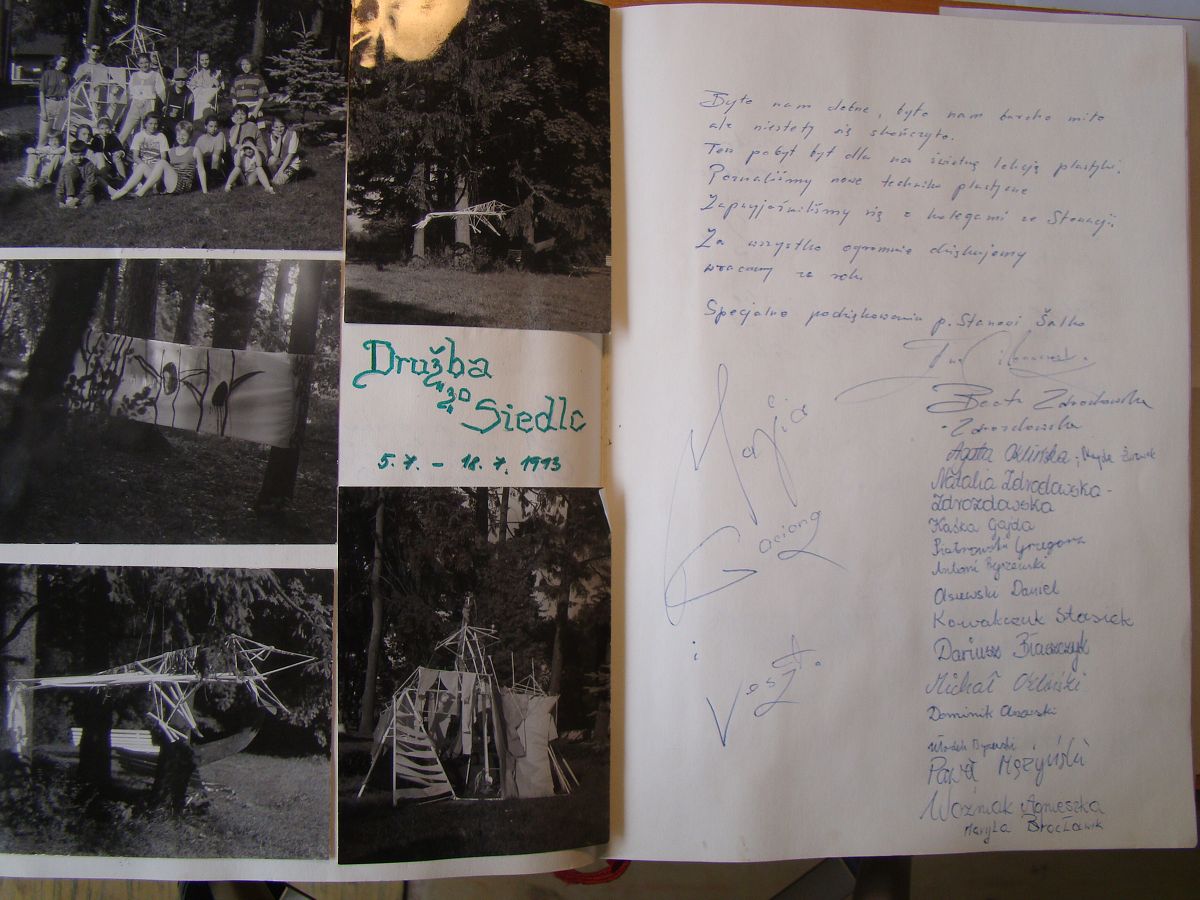 Družba
"zo
Siedlc
5.7. – 18.7. 1993
Było nam dobrze, było nam bardzo miło
ale niestety się skończyło.
Ten pobyt był dla nas świetną lekcją plastyki.
Poznaliśmy nowe techniki plastyczne
Zaprzyjaźniliśmy się z kolegami ze Słowacji
Za wszystko ogromnie dziękujemy
wracamy za rok.
Specjalne podziękowania p. Stanovi Šalko
Beata Zdrodowska
- Zdrozdowska
Agatta Orlińska, Magda
Natalia Zdrodowska-
Zdrozdowska
Kaśka Gajda
Piotrowski Grzegorz
Antoni Byszewski
Olszewski Daniel
Kowalczuk Stasiek
Dariusz Błaszczyk
Michał Orliński
Dominik
Włodek Byszewski
Paweł Mężyński
Woźniak Agnieszka
Maryla Brocławik
Maria
i